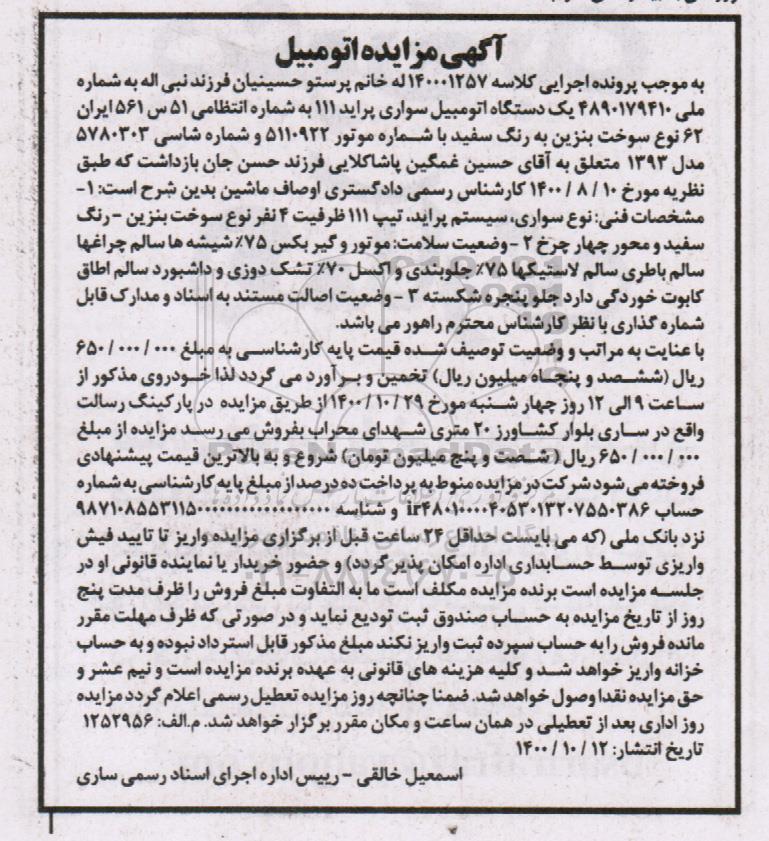 آگهی مزایده اتومبیل
به موجب پرونده اجرایی کلاسه ۱۴۰۰۰۱۲۵۷ له خانم پرستو حسینیان فرزند نبی اله به شماره
ملی ۴۸۹۰۱۷۹۴۱۰ یک دستگاه اتومبیل سواری پراید ۱۱۱ به شماره انتظامی ۵۱ س ۵۶۱ ایران
۶۲ نوع سوخت بنزین به رنگ سفید با شماره موتور ۵۱۱۰۹۲۲ و شماره شاسی ۵۷۸۰۳۰۳
مدل ۱۳۹۳ متعلق به آقای حسین غمگین پاشاکلایی فرزند حسن جان بازداشت که طبق
نظریه مورخ ۱۰ / ۸ / ۱۴۰۰ کارشناس رسمی دادگستری اوصاف ماشین بدین شرح است: ۱-
مشخصات فنی: نوع سواری، سیستم پراید، تیپ ۱۱۱ ظرفیت ۴ نفر نوع سوخت بنزین - رنگ
سفید و محور چهار چرخ ۲ - وضعیت سلامت: موتور و گیر بکس ۷۵٪ شیشه ها سالم چراغها
سالم باطری سالم لاستیکها ۷۵٪ جلوبندی و اکسل ۷۰٪ تشک دوزی و داشبورد سالم اطاق
کاپوت خوردگی دارد جلو پنجره شکسته ۳ - وضعیت اصالت مستند به اسناد و مدارک قابل
شماره گذاری با نظر کارشناس محترم راهور می باشد.
با عنایت به مراتب و وضعیت توصیف شده قیمت پایه کارشناسی به مبلغ ۰۰۰ / ۰۰۰ / ۶۵۰
ریال (ششصد و پنجاه میلیون ریال) تخمین و برآورد می گردد لذا خودروی مذکور از
ساعت ۹ الی ۱۲ روز چهار شنبه مورخ ۲۹ / ۱۰ / ۱۴۰۰ از طریق مزایده در پارکینگ رسالت
واقع در ساری بلوار کشاورز ۲۰ متری شهدای محراب بفروش می رسد مزایده از مبلغ
۰۰۰ / ۰۰۰ / ۶۵۰ ریال (شصت و پنج میلیون تومان) شروع و به بالاترین قیمت پیشنهادی
فروخته می شود شرکت در مزایده منوط به پرداخت ده درصد از مبلغ پایه کارشناسی به شماره
حساب
نزد بانک ملی (که می بایست حداقل ۲۴ ساعت قبل از برگزاری مزایده واریز تا تایید فیش
واریزی توسط حسابداری اداره امکان پذیر گردد) و حضور خریدار یا نماینده قانونی او در
جلسه مزایده است برنده مزایده مکلف است ما به التفاوت مبلغ فروش را ظرف مدت پنج
روز از تاریخ مزایده به حساب صندوق ثبت تودیع نماید و در صورتی که ظرف مهلت مقرر
مانده فروش را به حساب سپرده ثبت واریز نکند مبلغ مذکور قابل استرداد نبوده و به حساب
خزانه واریز خواهد شد و کلیه هزینه های قانونی به عهده برنده مزایده است و نیم عشر و
حق مزایده نقدا وصول خواهد شد. ضمنا چنانچه روز مزایده تعطیل رسمی اعلام گردد مزایده
روز اداری بعد از تعطیلی در همان ساعت و مکان مقرر برگزار خواهد شد. م.الف: ۱۲۵۲۹۵۶
تاریخ انتشار: ۱۲ / ۱۰ / ۱۴۰۰
اسمعیل خالقی - رییس اداره اجرای اسناد رسمی ساری